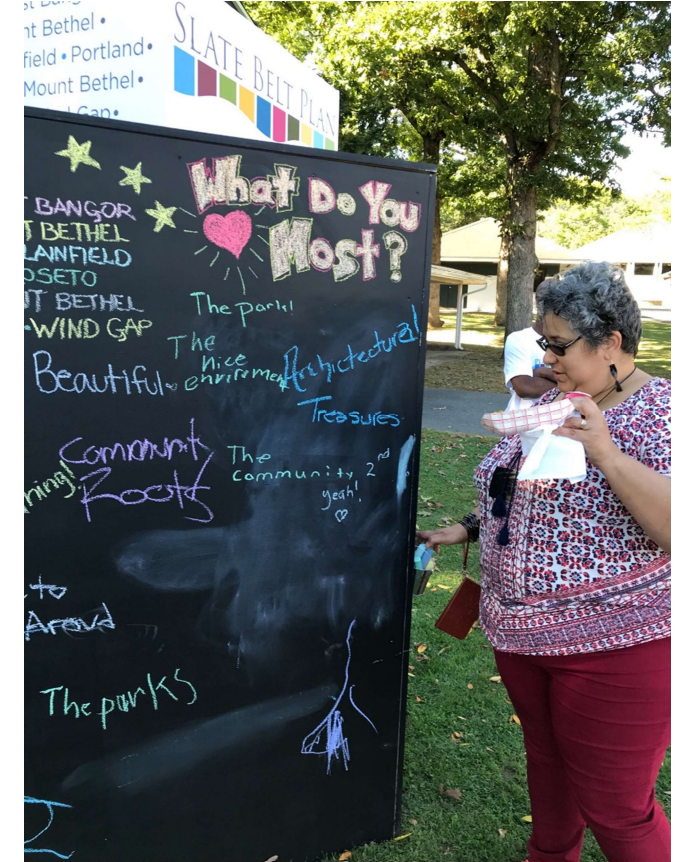 nt Bethel •
field • Portland •
Mount Bethel •
Gap •
SLATE BELT PLAN
What Do You
Most?
BANGOR
T BETHEL
LAINFIELD
OSETO
T BETHEL
• WIND GAP
The park!
The
nice
envirement
Architectural
Treasures
Beautiful
Community
Roots
The
community 2nd
yeah!
ning!
to
Aroud
The parks